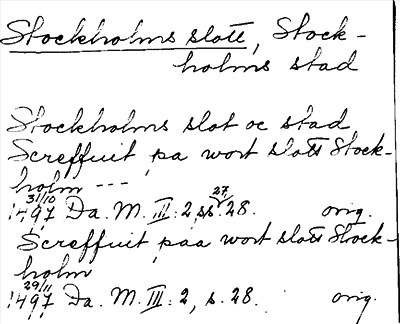 Stockholms slott, Stock-
holms stad
Stockholms slot oc stad
Screffuit pa wort slott Stock-
holm ---
31/10 1497 Da. M. III: 2, ss. 27, 28. orig.
Screffuit paa wort slott Stock-
holm
29/11 1497 Da. M. III: 2, s. 28. orig.